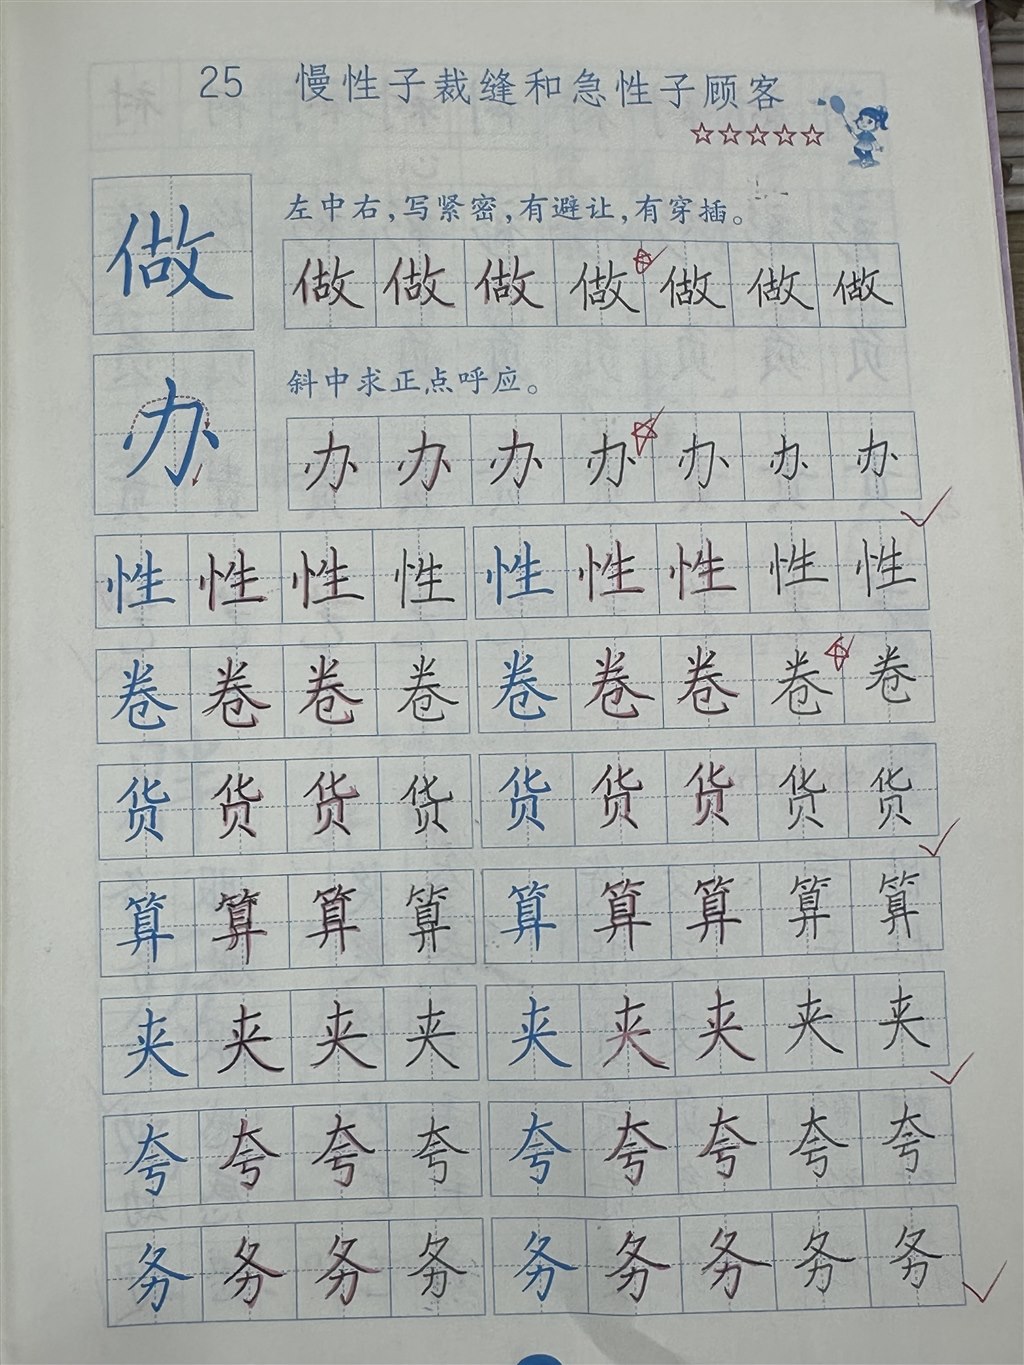 25 慢性子裁缝和急性子顾客
☆☆☆☆☆
做
左中右,写紧密,有避让,有穿插。
做做做做做做做
办
斜中求正,点呼应。
办办办办办办办
性性性性 性性性性性
卷卷卷卷 卷卷卷卷卷
货货货货 货货货货货
算算算算 算算算算算
夹夹夹夹 夹夹夹夹夹
夸夸夸夸 夸夸夸夸夸
务务务务 务务务务务